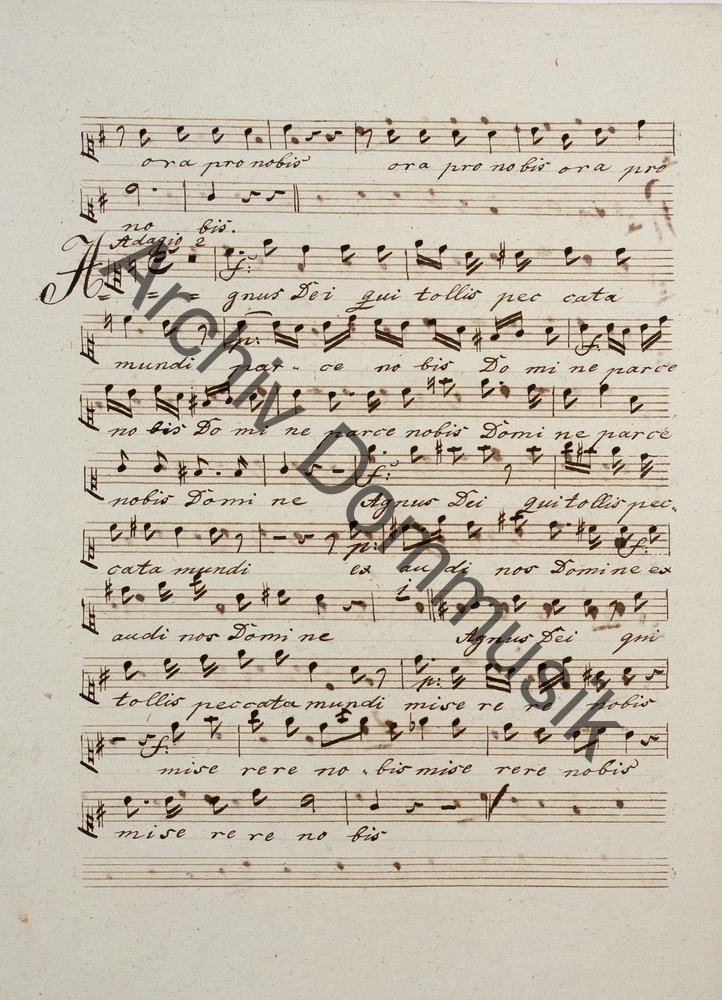 ora pro nobis ora pro nobis ora pro
no bis.
Adagio 2
Agnus Dei qui tollis pec cata
mundi par - ce no bis Do mi ne parce
no bis Do mi ne parce nobis Domi ne parce
nobis Domi ne Agnus Dei qui tollis pec-
cata mundi ex audi nos Domine ex
audi nos Domi ne Agnus Dei qui
tollis peccata mundi mise re re nobis
mise rere no - bis mise rere nobis
mise re re no bis
Archiv Dommusik